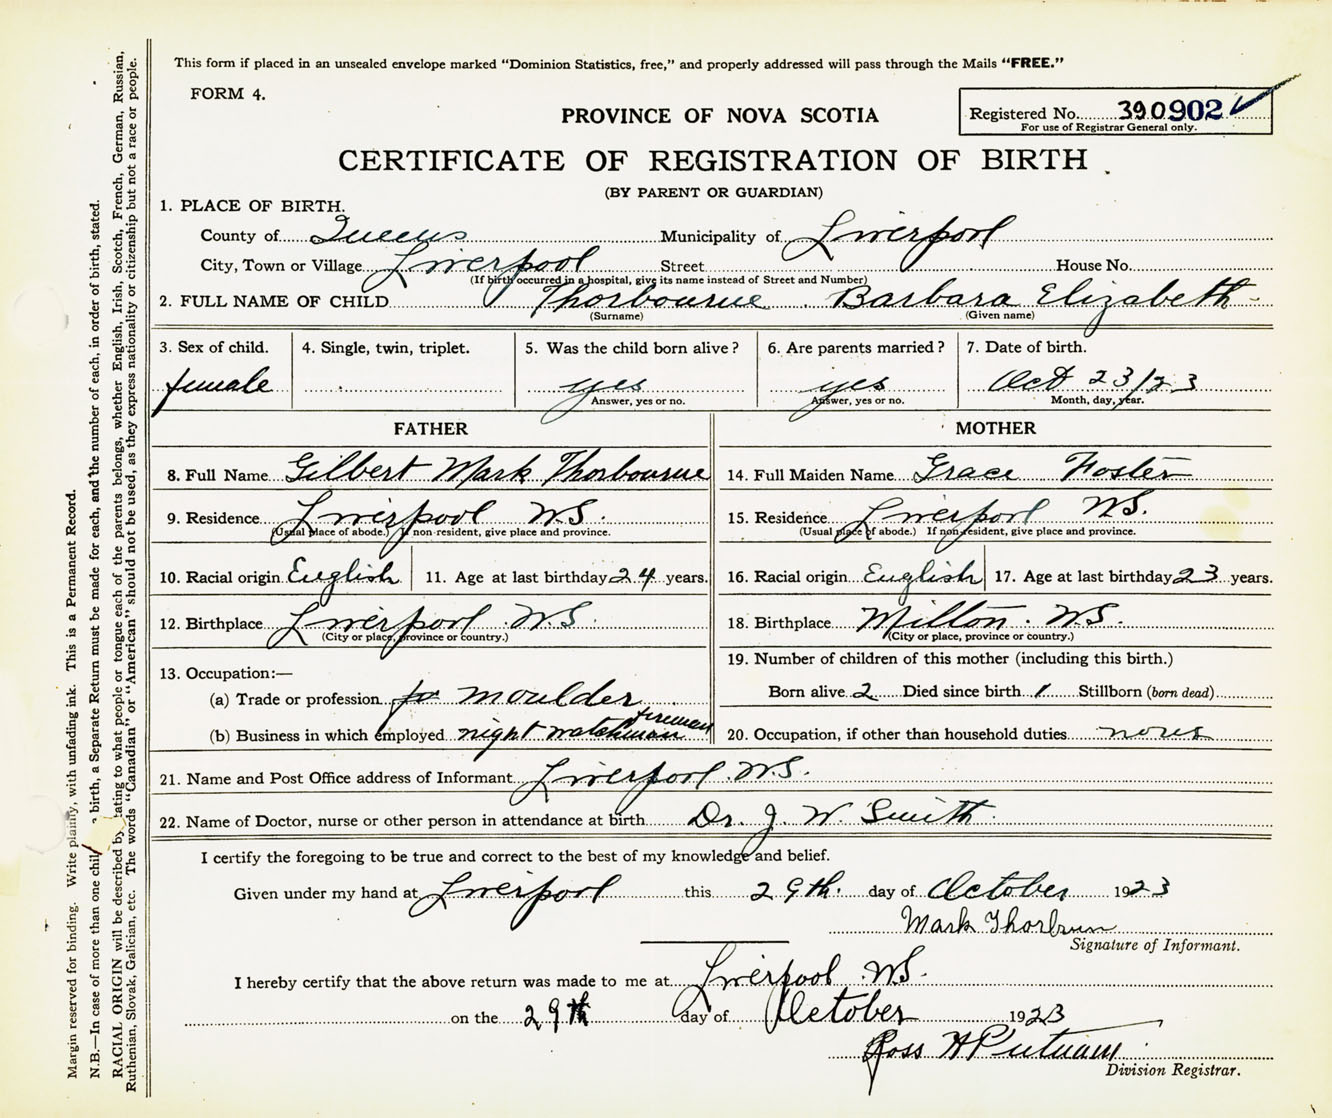 This form if placed in an unsealed envelope marked "Dominion Statistics, free," and properly addressed will pass through the Mails "FREE."
FORM 4.
PROVINCE OF NOVA SCOTIA
Registered No. 390902
For use of Registrar General only.
CERTIFICATE OF REGISTRATION OF BIRTH
(BY PARENT OR GUARDIAN)
1. PLACE OF BIRTH.
County of Queens Municipality of Liverpool
City, Town or Village Liverpool Street House No.
(If birth occurred in a hospital, give its name instead of Street and Number)
2. FULL NAME OF CHILD Thorbourne Barbara Elizabeth
(Surname) (Given name)
3. Sex of child. 4. Single, twin, triplet. 5. Was the child born alive? 6. Are parents married? 7. Date of birth.
female yes yes Oct 23/23
Answer, yes or no. Answer, yes or no. Month, day, year.
FATHER MOTHER
8. Full Name Gilbert Mark Thorbourne 14. Full Maiden Name Grace Foster
9. Residence Liverpool N.S. 15. Residence Liverpool N.S.
(Usual place of abode.) If non-resident, give place and province. (Usual place of abode.) If non-resident, give place and province.
10. Racial origin English 11. Age at last birthday 24 years. 16. Racial origin English 17. Age at last birthday 23 years.
12. Birthplace Liverpool N.S. 18. Birthplace Milton N.S.
(City or place, province or country.) (City or place, province or country.)
13. Occupation:— 19. Number of children of this mother (including this birth.)
(a) Trade or profession moulder Born alive 2 Died since birth 1 Stillborn (born dead)
fireman
(b) Business in which employed night watchman 20. Occupation, if other than household duties none
21. Name and Post Office address of Informant Liverpool N.S.
22. Name of Doctor, nurse or other person in attendance at birth Dr. J. W. Smith
I certify the foregoing to be true and correct to the best of my knowledge and belief.
Given under my hand at Liverpool this 29th. day of October 1923
Mark Thorburn
Signature of Informant.
I hereby certify that the above return was made to me at Liverpool N.S.
on the 29th day of October 1923
Ross H Putnam
Division Registrar.
Margin reserved for binding. Write plainly, with unfading ink. This is a Permanent Record.
N.B.—In case of more than one chil birth, a Separate Return must be made for each, and the number of each, in order of birth, stated.
RACIAL ORIGIN will be described by stating to what people or tongue each of the parents belongs, whether English, Irish, Scotch, French, German, Russian,
Ruthenian, Slovak, Galician, etc. The words "Canadian" or "American" should not be used, as they express nationality or citizenship but not a race or people.